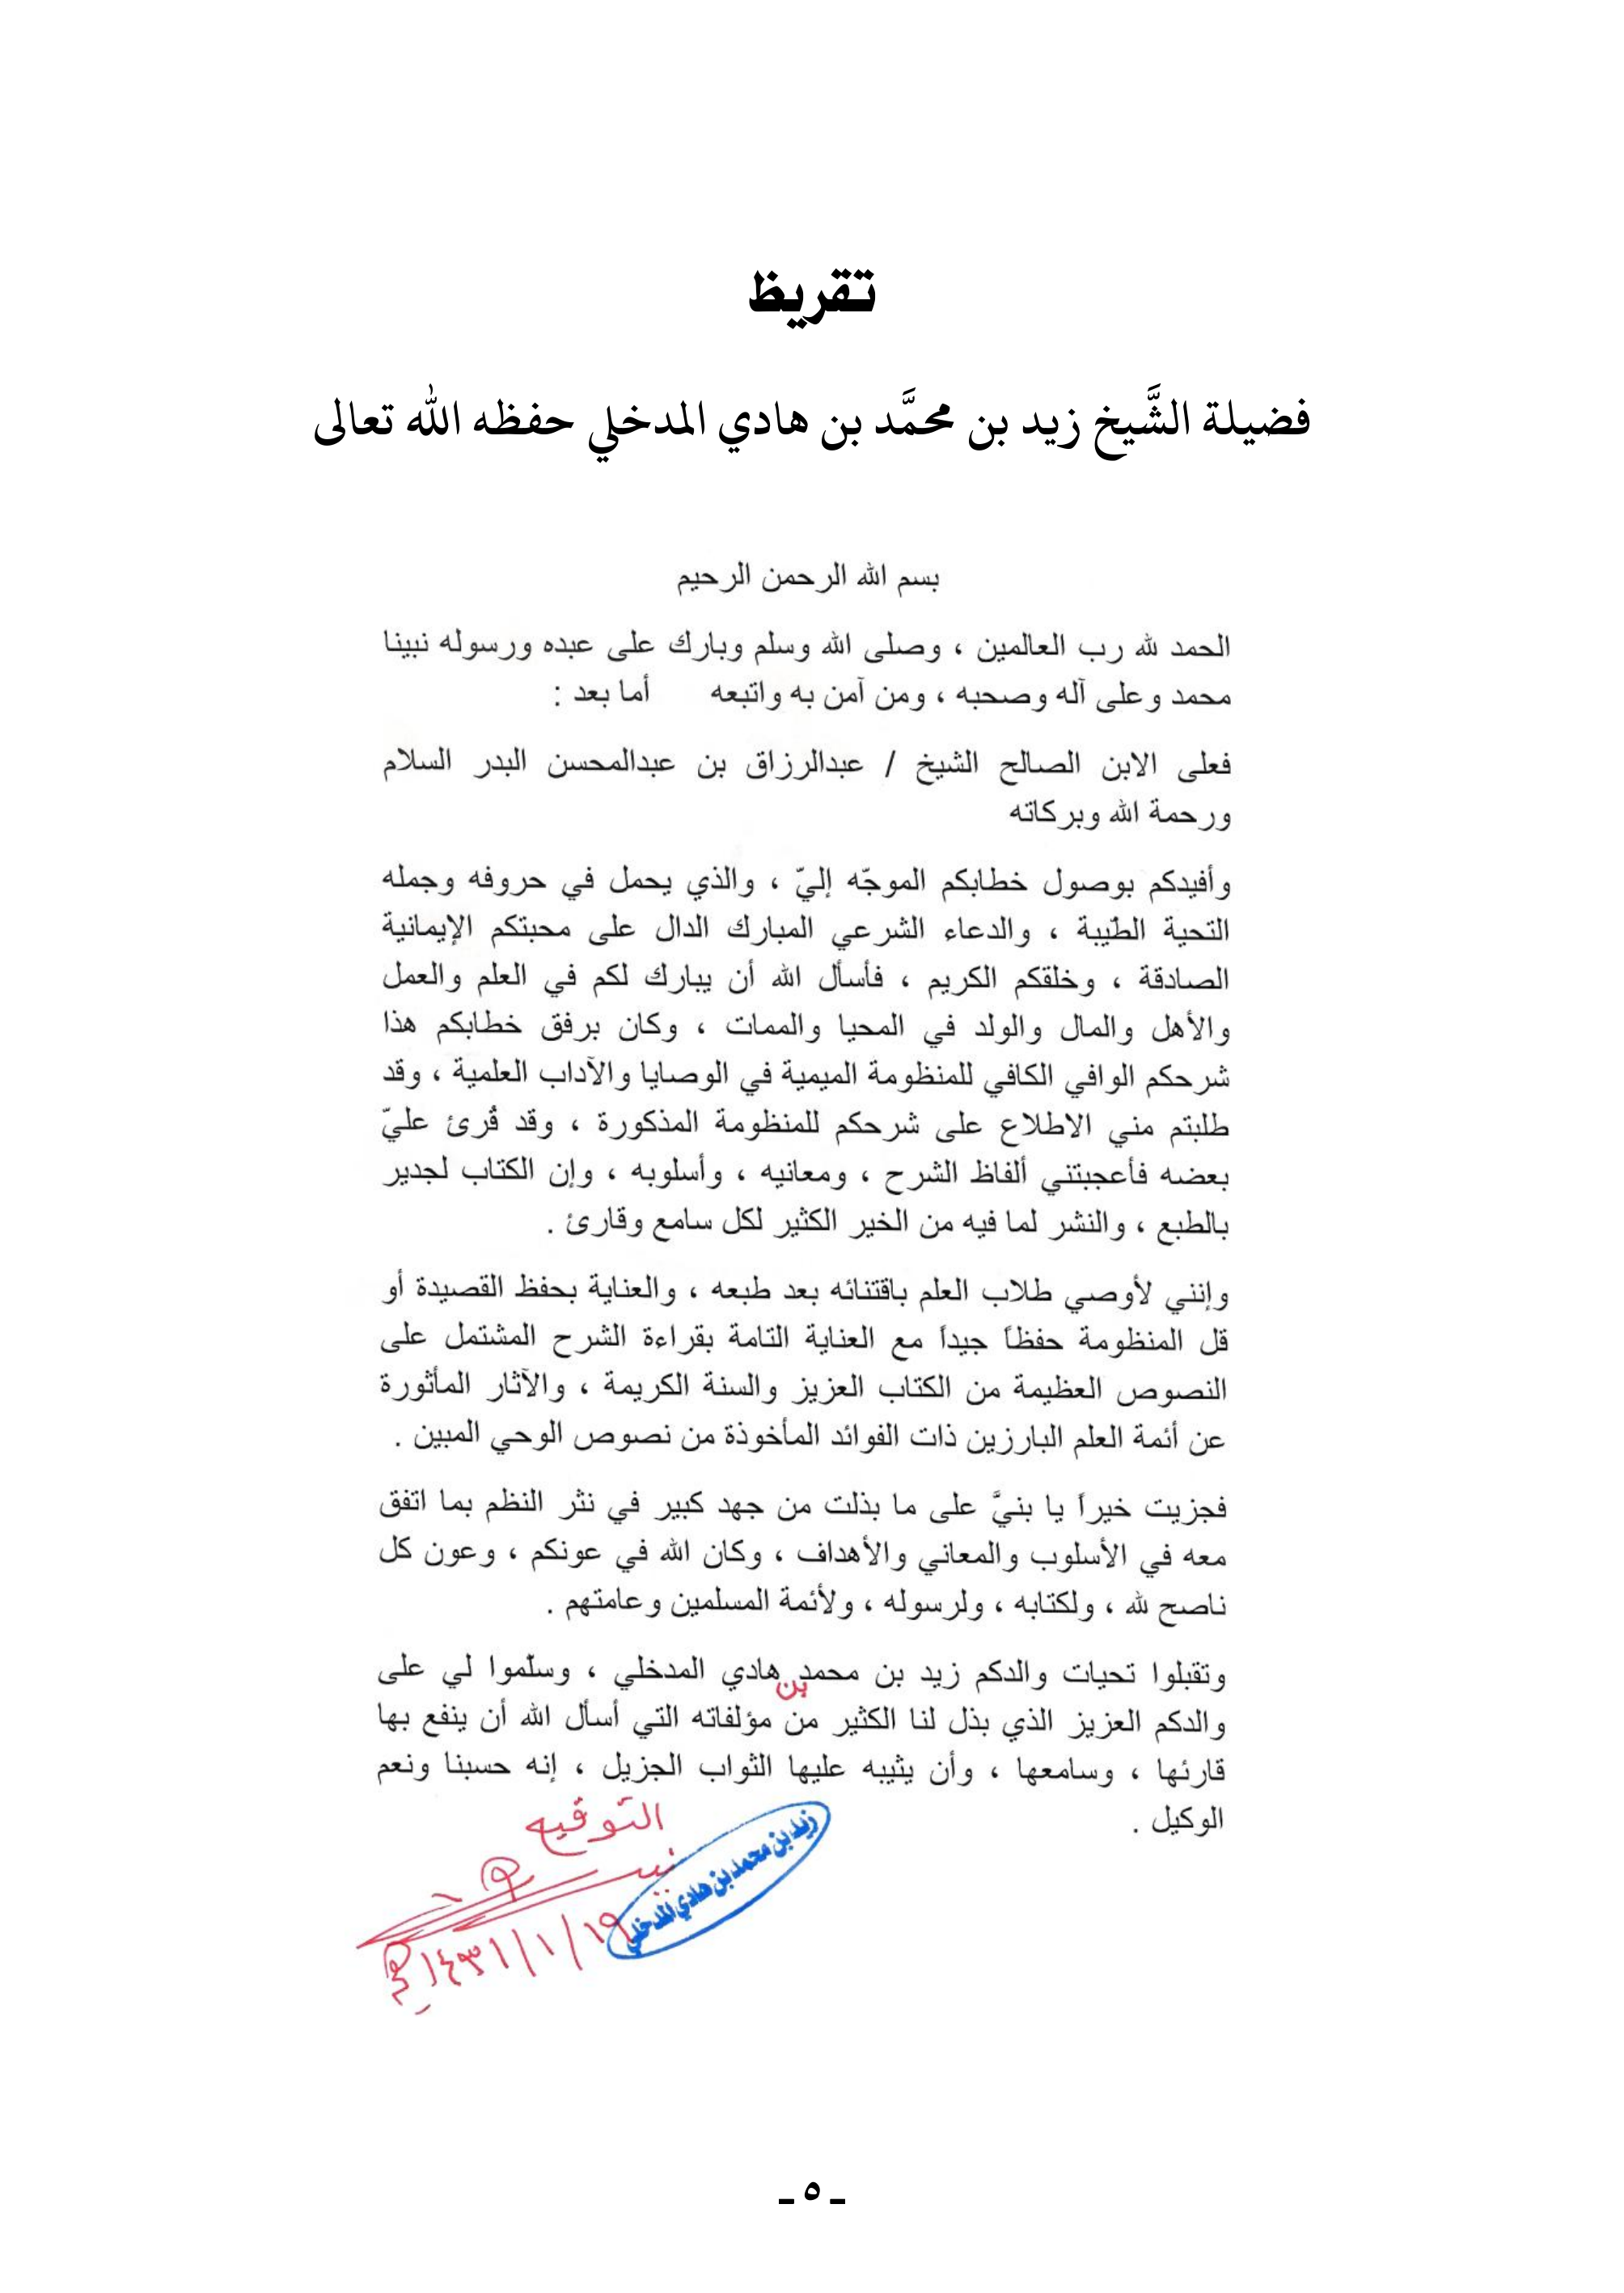 تقريظ
فضيلة الشَّيخ زيد بن محمَّد بن هادي المدخلي حفظه الله تعالى
بسم الله الرحمن الرحيم
الحمد لله رب العالمين ، وصلى الله وسلم وبارك على عبده ورسوله نبينا
محمد وعلى آله وصحبه ، ومن آمن به واتبعه أما بعد :
فعلى الابن الصالح الشيخ / عبدالرزاق بن عبدالمحسن البدر السلام
ورحمة الله وبركاته
وأفيدكم بوصول خطابكم الموجّه إليّ ، والذي يحمل في حروفه وجمله
التحية الطيبة ، والدعاء الشرعي المبارك الدال على محبتكم الإيمانية
الصادقة ، وخلقكم الكريم ، فأسأل الله أن يبارك لكم في العلم والعمل
والأهل والمال والولد في المحيا والممات ، وكان برفق خطابكم هذا
شرحكم الوافي الكافي للمنظومة الميمية في الوصايا والآداب العلمية ، وقد
طلبتم مني الاطلاع على شرحكم للمنظومة المذكورة ، وقد قُرئ عليّ
بعضه فأعجبتني ألفاظ الشرح ، ومعانيه ، وأسلوبه ، وإن الكتاب لجدير
بالطبع ، والنشر لما فيه من الخير الكثير لكل سامع وقارئ .
وإنني لأوصي طلاب العلم باقتنائه بعد طبعه ، والعناية بحفظ القصيدة أو
قل المنظومة حفظاً جيداً مع العناية التامة بقراءة الشرح المشتمل على
النصوص العظيمة من الكتاب العزيز والسنة الكريمة ، والآثار المأثورة
عن أئمة العلم البارزين ذات الفوائد المأخوذة من نصوص الوحي المبين .
فجزيت خيراً يا بنيَّ على ما بذلت من جهد كبير في نثر النظم بما اتفق
معه في الأسلوب والمعاني والأهداف ، وكان الله في عونكم ، وعون كل
ناصح لله ، ولكتابه ، ولرسوله ، ولأئمة المسلمين وعامتهم .
وتقبلوا تحيات والدكم زيد بن محمد بن هادي المدخلي ، وسلّموا لي على
والدكم العزيز الذي بذل لنا الكثير من مؤلفاته التي أسأل الله أن ينفع بها
قارئها ، وسامعها ، وأن يثيبه عليها الثواب الجزيل ، إنه حسبنا ونعم
الوكيل .
التوقيع
زيد بن محمد بن هادي المدخلي
١٤٣١/١/١٩هـ
ـ ٥ ـ